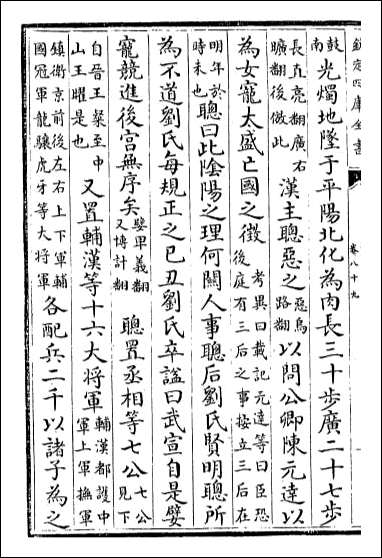 欽定四庫全書
卷八十九
鼓南光燭地墜于平陽北化為肉長三十歩廣二十七歩
長直亮翻廣古曠翻後倣此漢主聰惡之惡烏路翻以問公卿陳元達以
為女寵太盛亡國之徵考異曰載記元達等曰臣恐後庭有三后之事按立三后在
明年於時未也聰曰此陰陽之理何關人事聰后劉氏賢明聰所
為不道劉氏每規正之己丑劉氏卒諡曰武宣自是嬖
寵競進後宮無序矣嬖卑義翻又博計翻聰置丞相等七公七公見下
自晉王粲至中山王曜是也又置輔漢等十六大將軍輔漢都護中軍上軍撫軍
鎮衛京前後左右上下軍輔國冠軍龍驤虎牙等大將軍各配兵二千以諸子為之